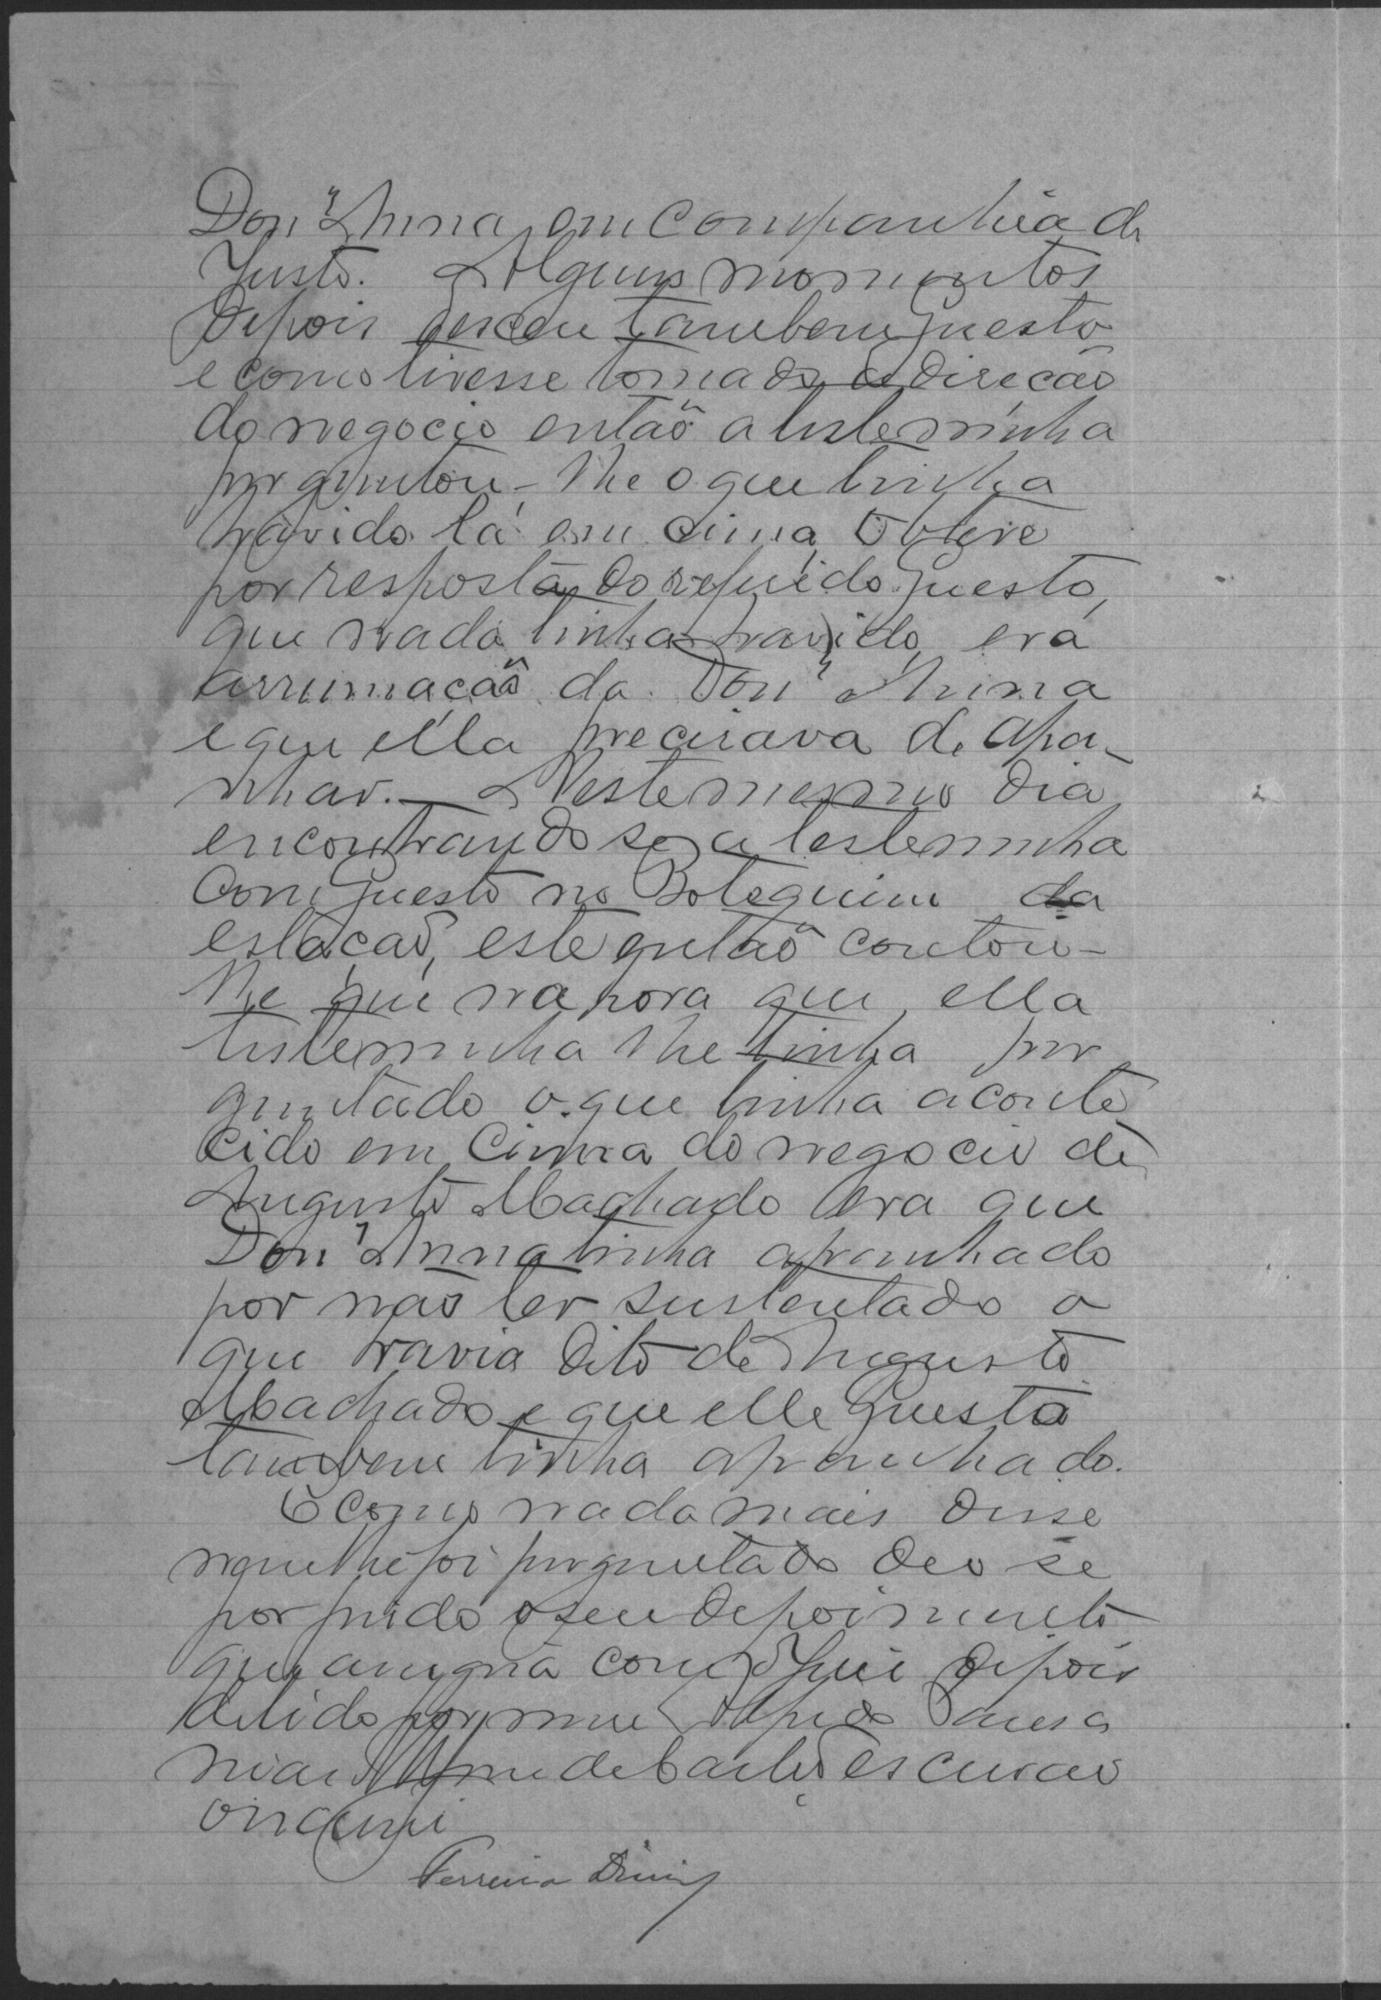 Don'Anna em companhia de
Justo. Alguns momentos
depois desceu tambem Questo
e como tivesse tomado a direcão
do negocio então a testeminha
perguntou-lhe o que tinha
havido lá em cima, obteve
por resposta do referido Questo,
que nada tinha havido, era
arrumacão da Don'Anna
e que ella precisava de apa-
nhar. — Neste mesmo dia
encontrando se a testeminha
com Questo no Botequim da
estação, este então contou-
lhe que na hora que ella
testeminha lhe tinha per
guntado o que tinha aconte
cido em cima do negocio de
Augusto Machado era que
Don'Anna tinha apanhado
por não ter sustentado o
que havia dito de Augusto
Machado e que elle Questo
tambem tinha apanhado.
E como nada mais disse
nem lhe foi perguntado deo se
por findo o seu depoimento
que assigna com depois
de lido por mim
escrivão